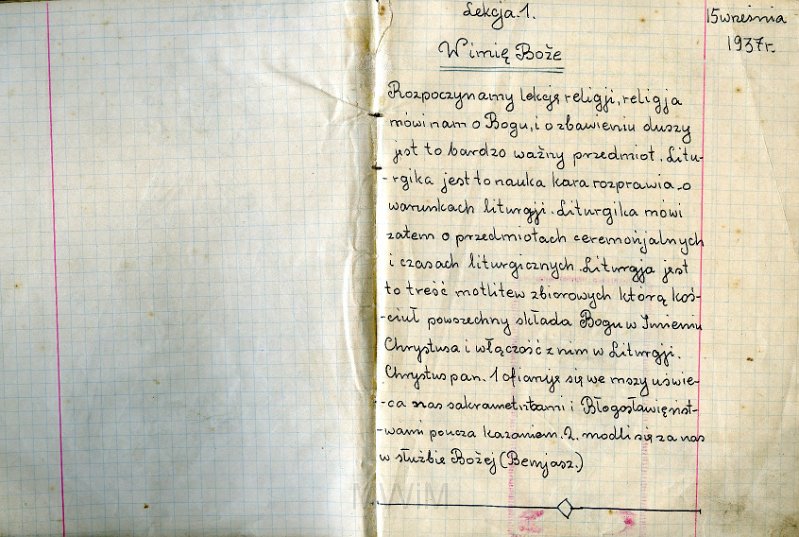 Lekcja.1.
15 września
1937r.
W imię Boże
Rozpoczynamy lekcję religji, religja
mówi nam o Bogu, i o zbawieniu duszy
jest to bardzo ważny przedmiot. Litu-
-rgika jest to nauka kara rozprawia o
warunkach liturgji. Liturgika mówi
zatem o przedmiotach ceremonjalnych
i czasach liturgicznych. Liturgja jest
to treść motlitew zbiorowych którą koś-
-ciuł powszechny składa Bogu w Imieniu
Chrystusa i włączość z nim w Liturgji.
Chrystus pan. 1 ofiaruje się we mszy uświe-
-ca nas sakrametntami i Błogosławięnst-
-wami poucza kazaniem. 2. modli się za nas
w służbie Bożej (Benjasz.)
MWiM